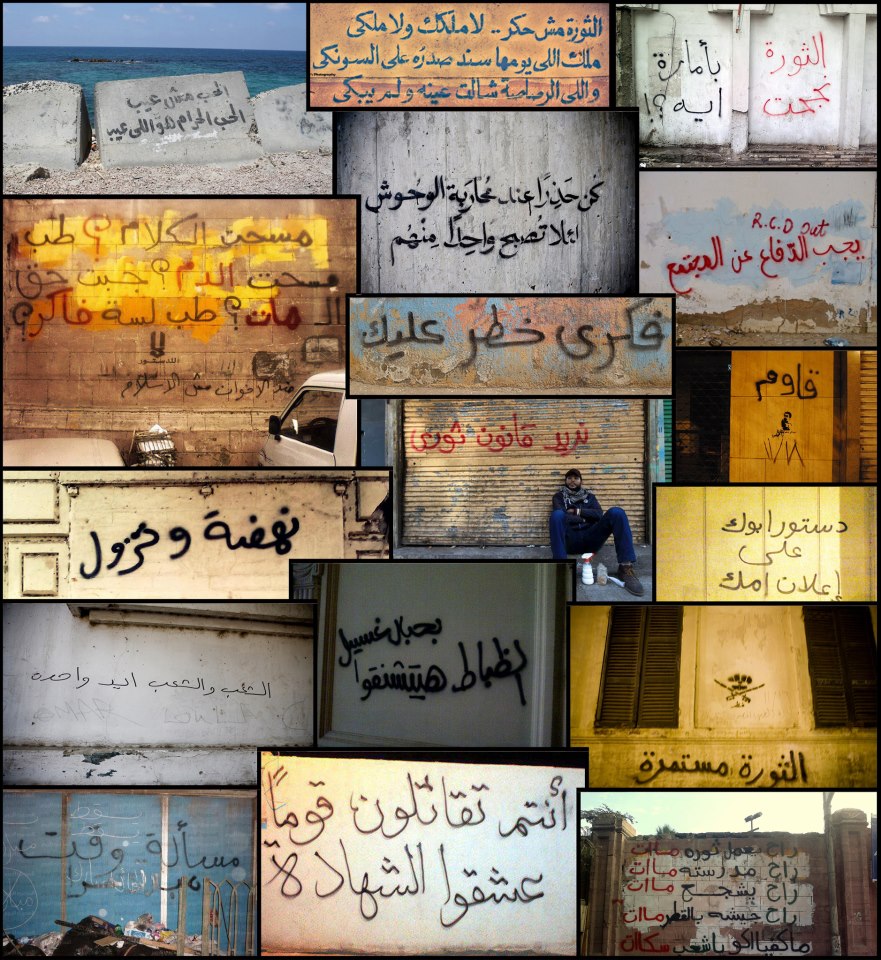 الحب مش عيب
الحب الحرام هو اللي عيب
الثورة مش حكر.. لا ملكك ولا ملكى
ملك اللى يومها سند صدره على السونكى
واللى الرصاصة شالت عينه ولم يبكى
الثورة
نجحت
بأمارة
ايه ؟!
كن حذرًا عند محاربة الوحوش
لئلا تصبح واحدًا منهم
R.C.D out
يجب الدفاع عن المجتمع
مسحت الكلام ؟ طب
مسحت الدم ؟ جبت حق
الـ مات ؟ طب لسة فاكر ؟
ضد الاخوان مش الاسلام
فكرى خطر عليك
قاوم
نريد قانون ثورى
نهضة وتزول
دستور ابوك
على
إعلان امك
الشعب والشعب ايد واحدة
بحبال غسيل
الظباط هيتشنقوا
الثورة مستمرة
مسألة وقت
أنتم تقاتلون قومًا
عشقوا الشهادة
راح يعمل ثورة مااات
راح مدرسته مااات
راح يشجع مااات
راح جيشه بالقطر مااات
يا شعب سكات